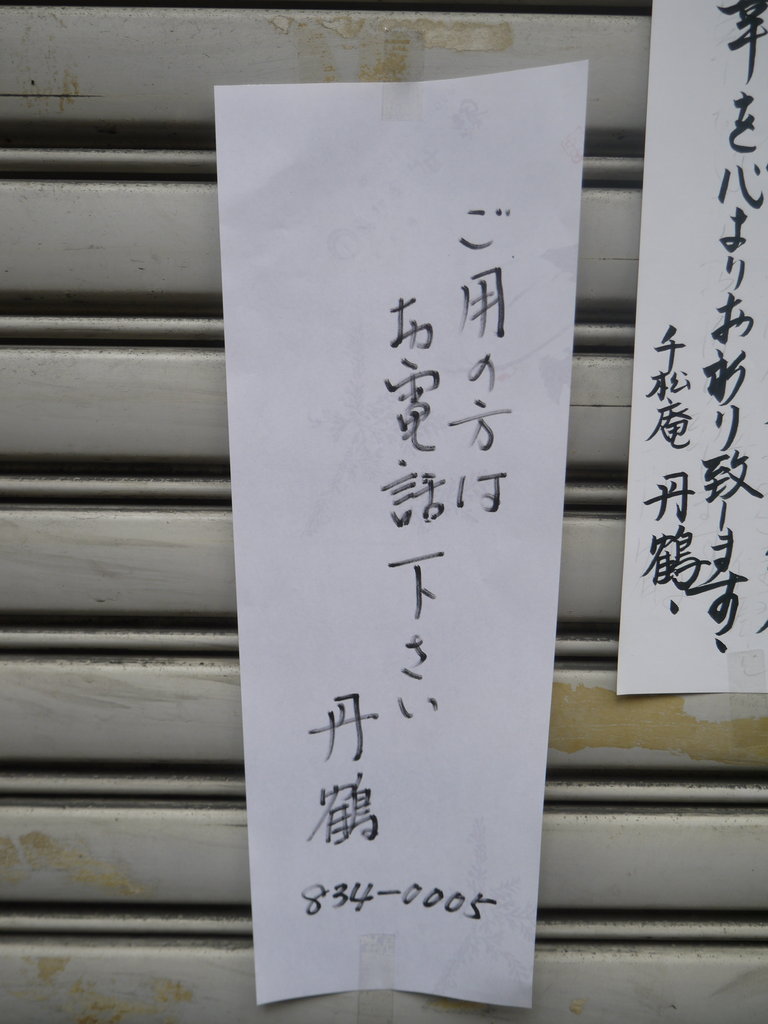 ご用の方は
お電話下さい
丹鶴
834-0005
幸を心よりお祈り致します、
千松庵 丹鶴、